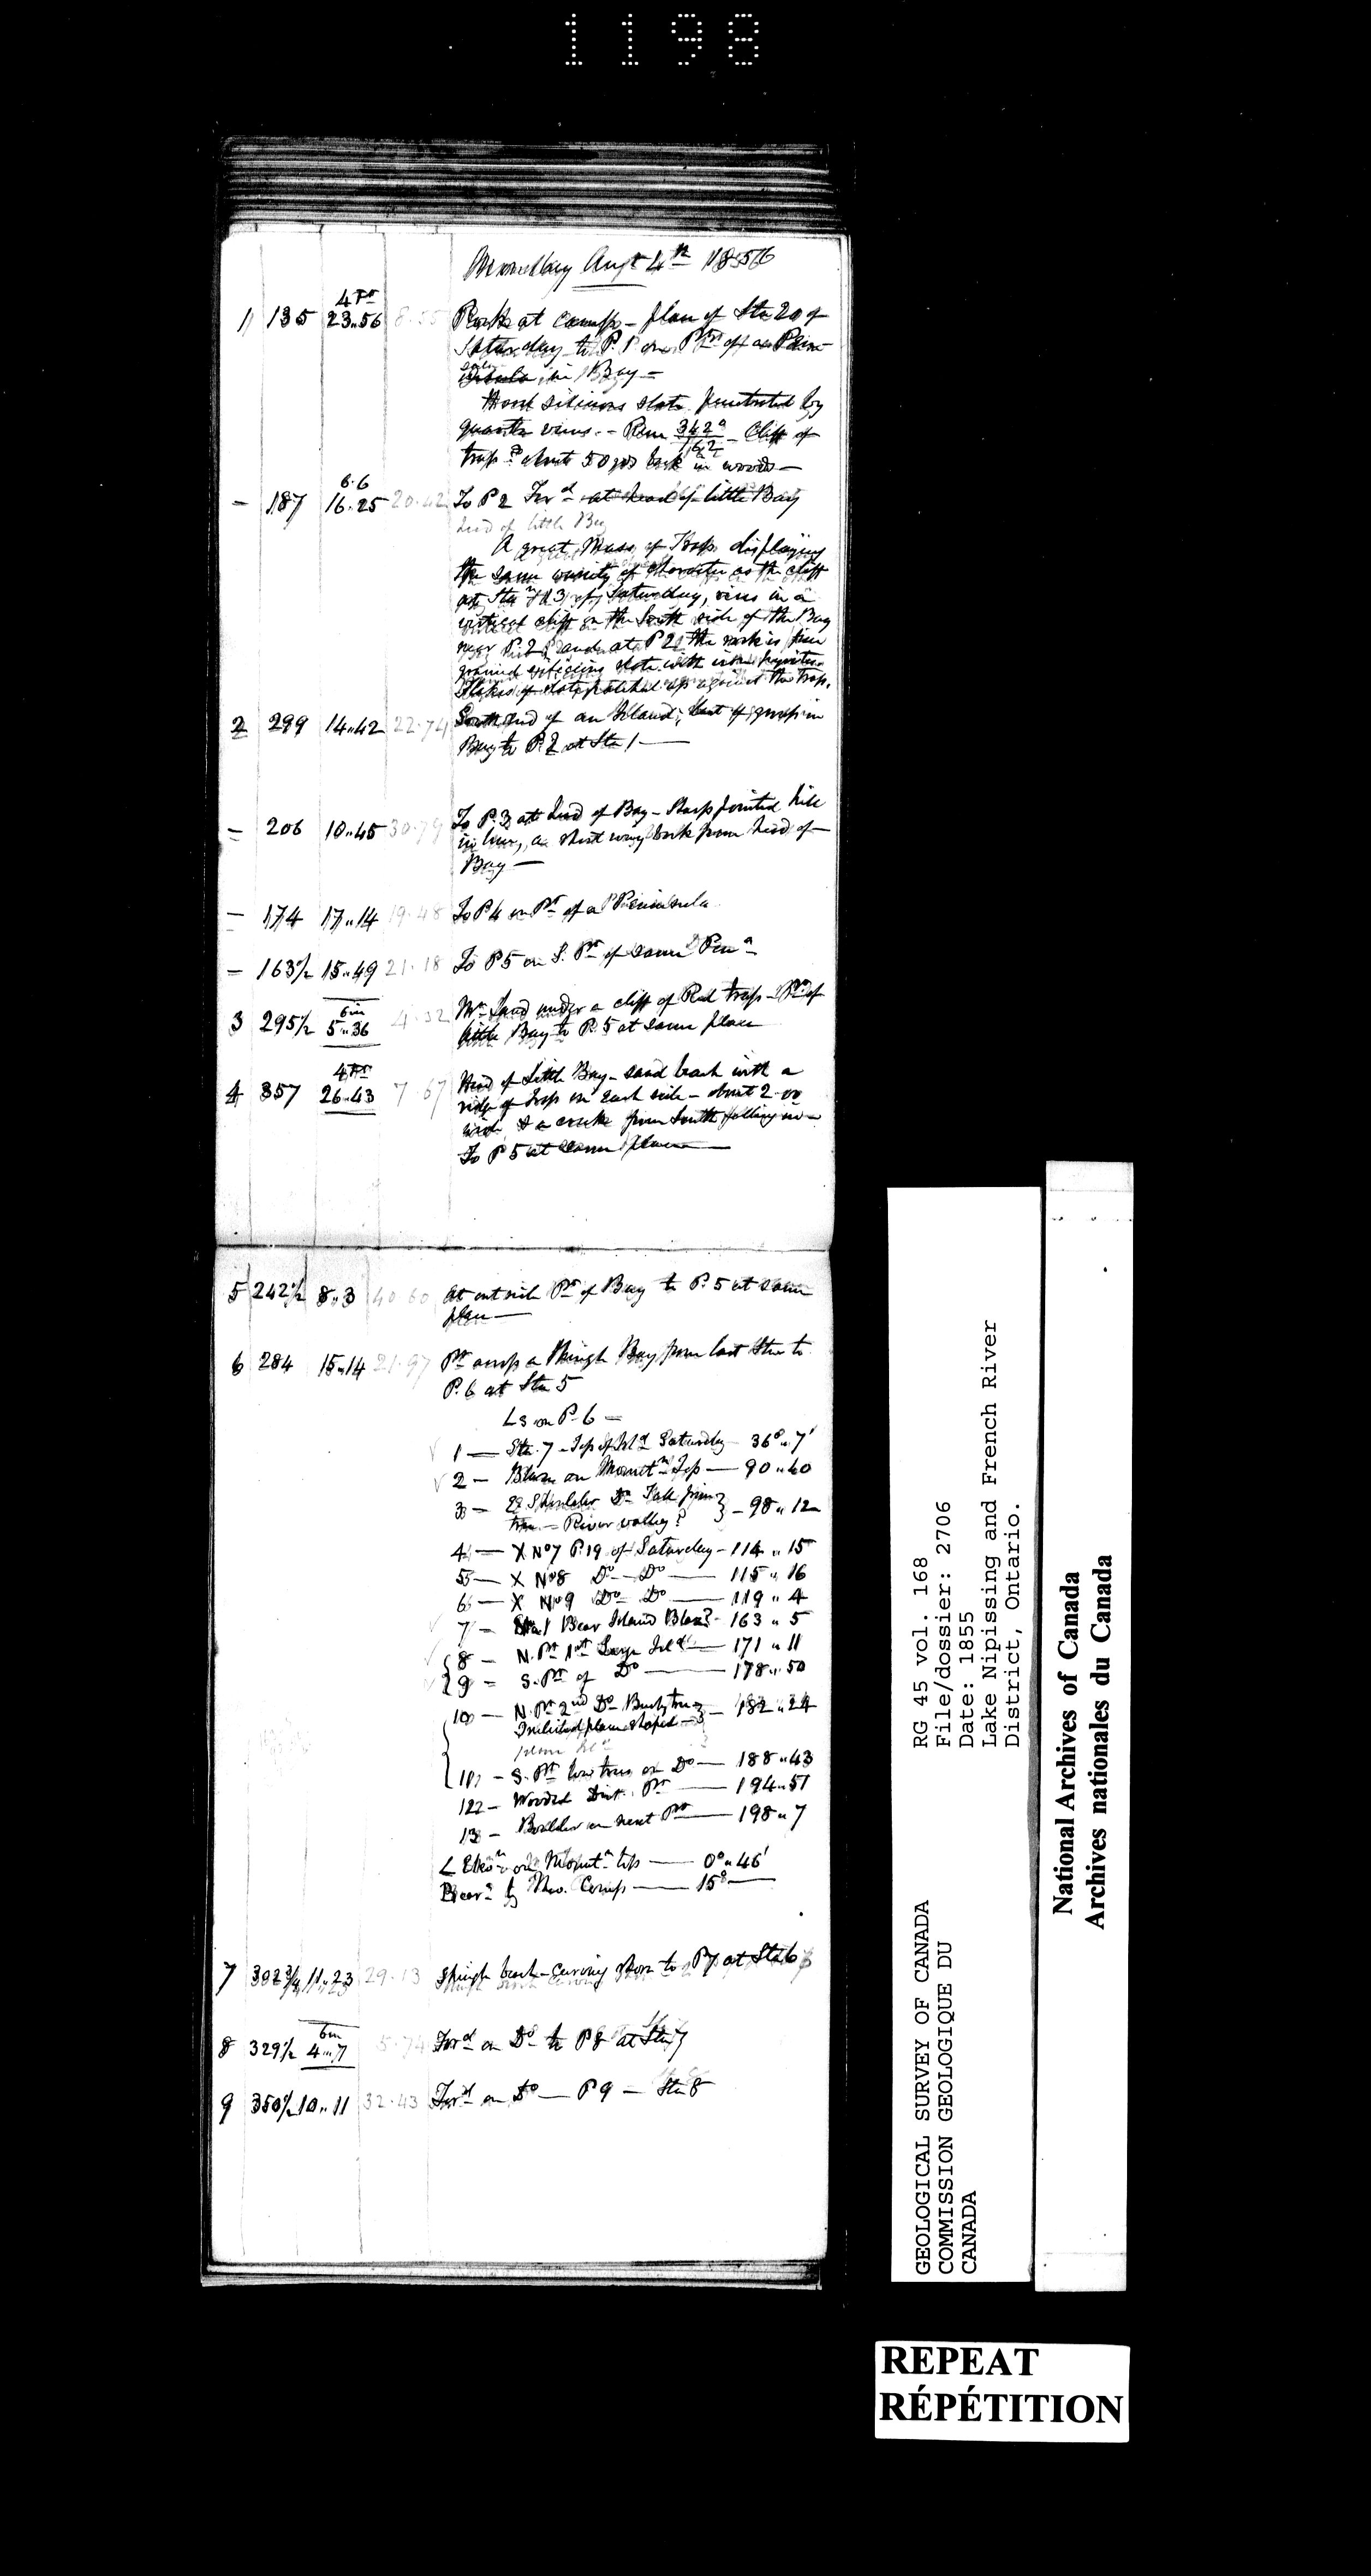 1198
Monday Augt 4th 1856
4 Ft
1 135 23..56 8.55 Rock at camp - place of Sta 20 of
Saturday to P. 1 on Pt of a Penin-
sula in Bay -
Hard silicious slate penetrated by
quartz veins. - Rem 342° / 162 - Cliff of
trap? about 50 yds back in woods -
6.6
- 187 16.25 20.42 To P 2 Forwd at head of little Bay
head of little Bay
A great mass of Trap displaying
the same variety of character as the cliff
at Sta 3 of Saturday, rises in a
vertical cliff on the South side of the Bay
near P. 2, and at P 2 the rock is fine
grained silicious slate with iron pyrites.
Flakes of slate patched up against the trap.
2 299 14..42 22.74 South end of an Island; last of group in
Bay to P. 2 at Sta 1 -
- 206 10..45 30.79 To P. 3 at head of Bay - Sharp pointed hill
in line, a short way back from head of
Bay -
- 174 17..14 19.48 To P 4 on Pt of a Peninsula
- 163½ 15..49 21.18 To P 5 on S. Pt of same Pena
6 in
3 295½ 5..36 4.32 Mn Land under a cliff of Red trap - Pt of
little Bay to P. 5 at same place
4 Ft
4 357 26..43 7.67 Head of Little Bay - sand beach with a
ridge of trap on each side - about 2.00
wide & a creek from South falling in -
To P 5 at same place
5 242½ 8..3 40.60 At outside Pt of Bay to P. 5 at same
place -
6 284 15..14 21.97 Pt across a Shingle Bay from last Sta to
P. 6 at Sta 5
Ls on P. 6 =
1 - Sta. 7 - Top of Isld Saturday 36°..7'
2 - Blaze on Mountn Top - 90..40
3 - Do Tall pine
tree - River valley? } - 98..12
4 - X No 7 P. 19 of Saturday - 114..15
5 - X No 8 Do - Do - 115..16
6 - X No 9 Do Do - 119..4
7 - Sta. 1 Bear Island Blaze? - 163..5
8 - N. Pt 1st Large Isld - 171..11
9 - S. Pt of Do - 178..50
10 - N. Pt 2nd Do Bushy tree
Inclined plane shaped } - 182..24
11 - S. Pt low trees on Do - 188..43
12 - Wooded Dist. Pt - 194..51
13 - Boulder on next Pt - 198..7
L Elevn on Mountn top - 0°..46'
Bearg by Theo. Comp - 15° -
7 302¾ 11..23 29.13 Shingle beach - curving shore to P 7 at Sta 6
6 in
8 329½ 4..7 5.74 Forwd on Do to P 8 at Sta 7
9 350½ 10..11 32.43 Forwd on Do - P 9 - Sta 8
GEOLOGICAL SURVEY OF CANADA
COMMISSION GEOLOGIQUE DU
CANADA
RG 45 vol. 168
File/dossier: 2706
Date: 1855
Lake Nipissing and French River
District, Ontario.
National Archives of Canada
Archives nationales du Canada
REPEAT
RÉPÉTITION